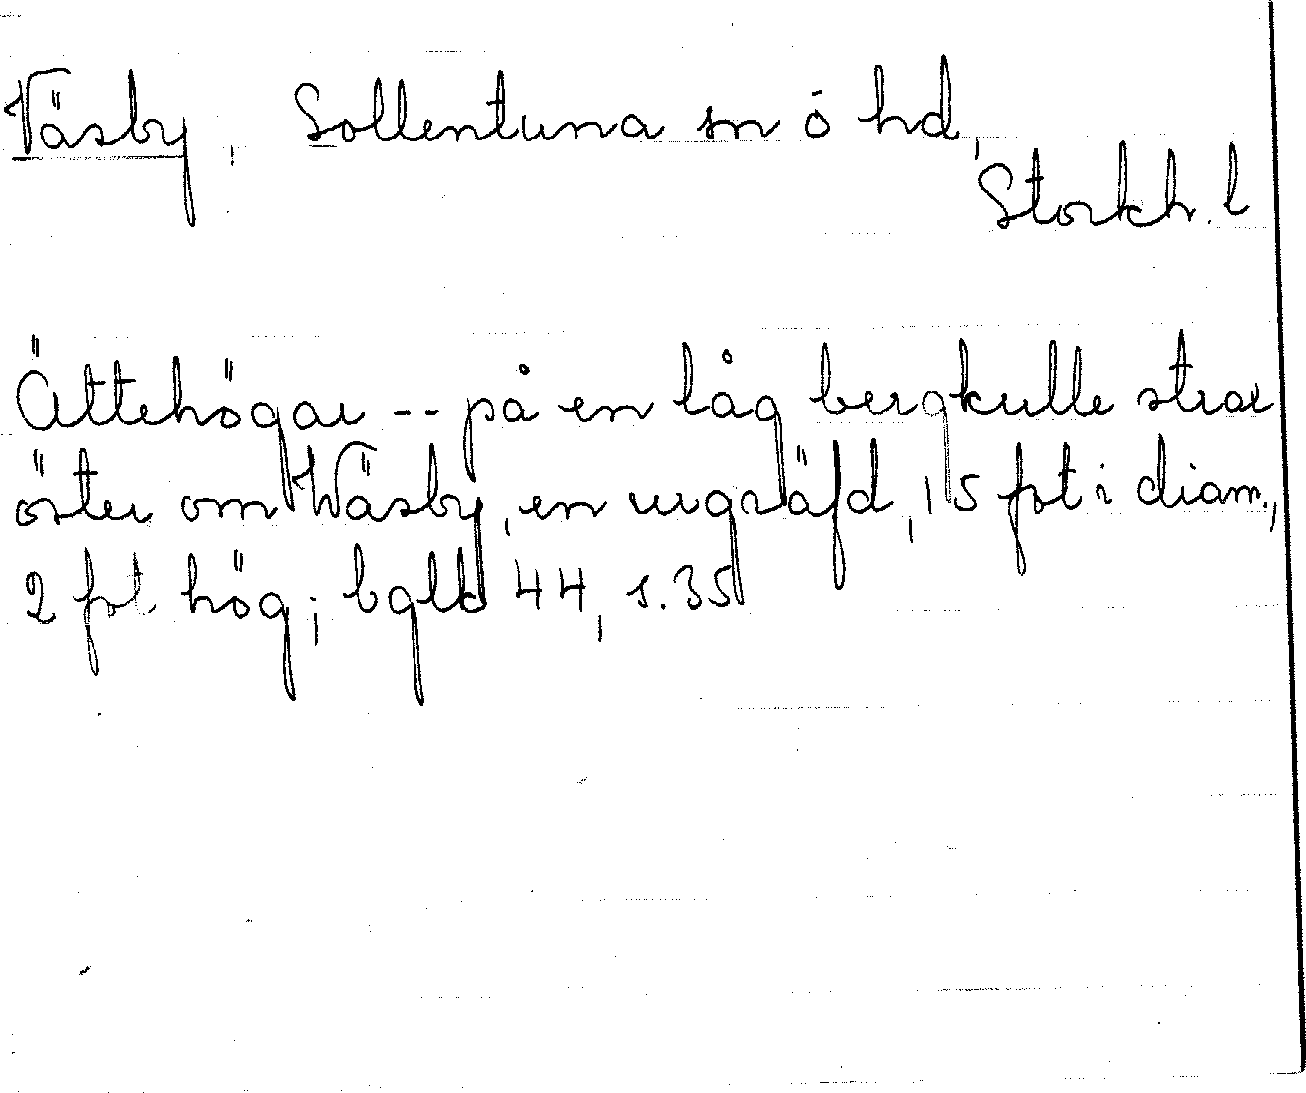 Väsby, Sollentuna sn ó hd,
Stockh. l
Ättehögar -- på en låg bergkulle strax
öster om Wäsby, en urgräfd, 15 fot i diam.,
2 fot hög; bglb 44, s. 35